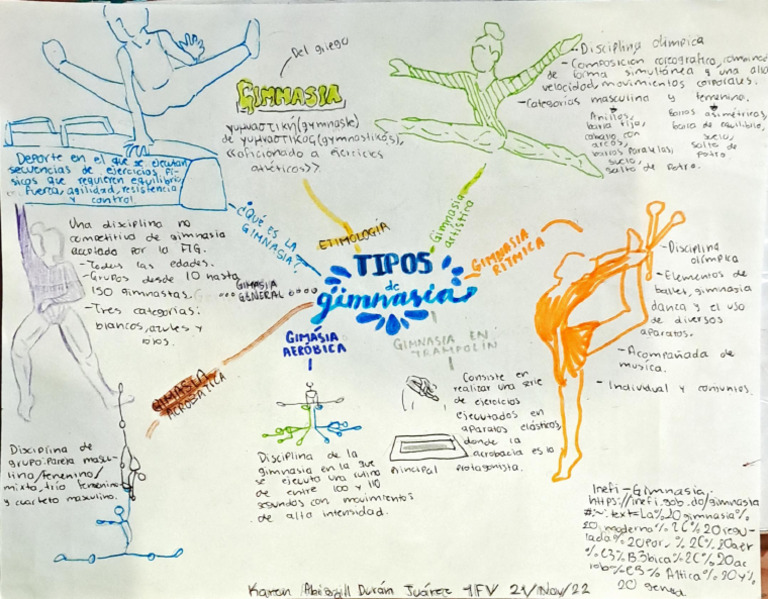 Del griego
GIMNASIA
γυμναστική (gymnastiké)
de γυμναστικος (gymnastikós),
<<aficionado a ejercicios
atléticos>>
ETIMOLOGÍA
Deporte en el que se ejecutan
secuencias de ejercicios fí-
sicos que requieren equilibrio,
fuerza, agilidad, resistencia
y control.
¿QUÉ ES LA
GIMNASIA?
- Disciplina olímpica
- Composicion coreografica, combinando
de forma simultánea y una alta
velocidad, movimientos corporales.
- Categorías masculina y femenina.
Anillos,
barra fija,
caballo con
arcos,
barras paralelas,
suelo,
salto de potro.
Barras asimétricas,
barra de equilibrio,
suelo,
salto de
potro
Gimnasia
artística
TIPOS
de
gimnasia
GIMNASIA
RÍTMICA
- Disciplina
olímpica
- Elementos de
ballet, gimnasia
danza y el uso
de diversos
aparatos.
- Acompañada de
musica.
- Individual y conjuntos.
Una disciplina no
competitiva de gimnasia
acoplado por la FIG.
- Todas las edades.
- Grupos desde 10 hasta
150 gimnastas.
- Tres categorías:
blancos, azules y
rojos.
GIMASIA
GENERAL
GIMASIA
ACROBÁTICA
Disciplina de
grupo. Pareja mascu-
lina/femenino/
mixta, trío femenino
y cuarteto masculino.
GIMÁSIA
AERÓBICA
Disciplina de la
gimnasia en la que
se ejecuta una rutina
de entre 100 y 110
segundos con movimientos
de alta intensidad.
GIMNASIA EN
TRAMPOLÍN
Consiste en
realizar una serie
de ejercicios
ejecutados en
aparatos elásticos,
donde la
acrobacia es la
principal protagonista.
Inefi-Gimnasia.
https://inefi.gob.do/gimnasia
#:~:text=La%20gimnasia%
20moderna%2C%20regu-
lada%20por,%2C%20aer
%C3%B3bica%2C%20ac
roba%C3%A1tica%20y%
20genera
Karen Abigaill Durán Juárez 1FV 21/Nov/22